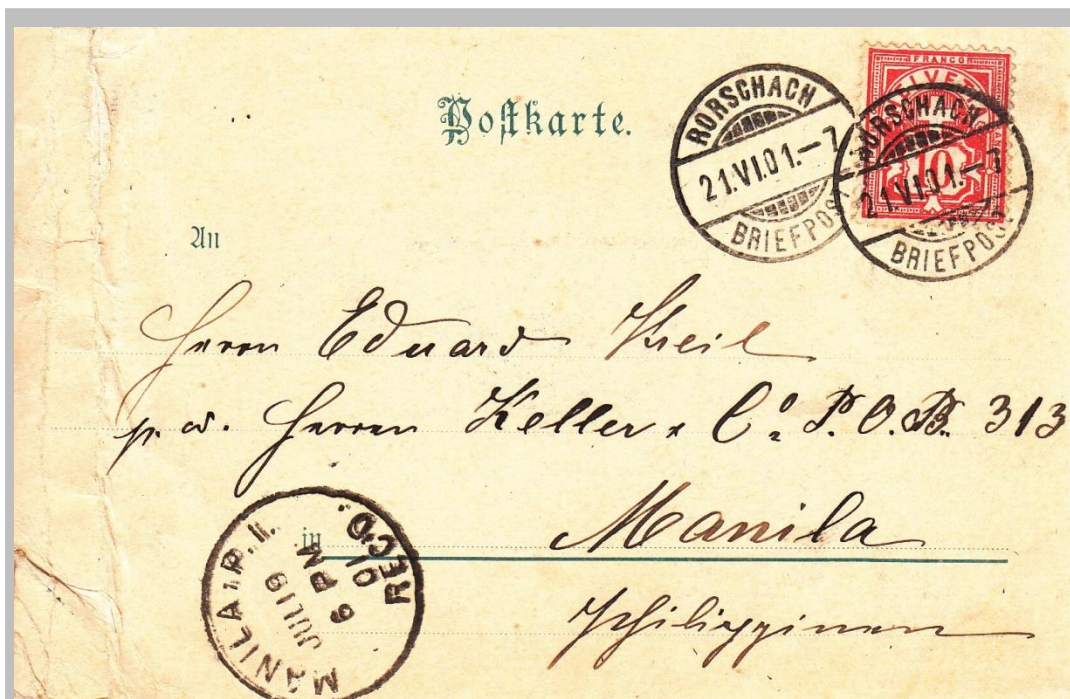 Postkarte.
RORSCHACH
21.VI.01.-7
BRIEFPOST
RORSCHACH
21.VI.01.-7
BRIEFPOST
FRANCO
10
An
Herrn Eduard Kreil
p. a. Herren Keller & Cº P.O.B. 313
in Manila
Philippinen
MANILA, P.I.
JUL 19
6 PM
01
REC'D.